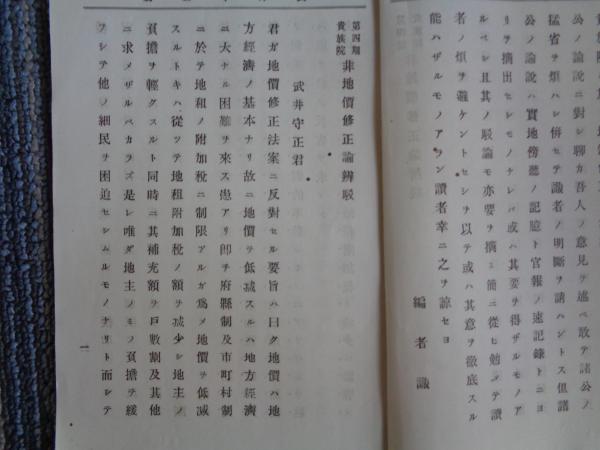 公ノ論說ニ對シ聊カ吾人ノ意見ヲ述ベ敢テ諸公ノ
猛省ヲ煩ハシ併セテ識者ノ明斷ヲ請ハントス但諸
公ノ論說ハ實地傍聽ノ記臆ト官報ノ速記錄トニヨ
リヲ摘出セシモノナレバ或ハ其要ヲ得ザルモノア
ルベシ且其ノ駁論モ亦要ヲ摘ミ簡ニ從ヒ勉メテ讀
者ノ煩ヲ避ケントセシヲ以テ或ハ其意ヲ徹底スル
能ハザルモノアラン讀者幸ニ之ヲ諒セヨ
編者識
第四期
貴族院 非地價修正論辨駁
武井守正君
君ガ地價修正法案ニ反對セル要旨ハ曰ク地價ハ地
方經濟ノ基本ナリ故ニ地價ヲ低减スルハ地方經濟
ニ大ナル困難ヲ來ス患アリ卽チ府縣制及市町村制
ニ於テ地租ノ附加稅ニ制限アルガ爲メ地價ヲ低减
スルトキハ從ツテ地租附加稅ノ額ヲ减少シ地主ノ
負擔ヲ輕クスルト同時ニ其補充額ヲ戶數割及其他
ニ求メザルベカラズ是レ唯ダ地主ノモノ負擔ヲ緩
フシテ他ノ細民ヲ困迫セシムルモノナリト而シテ
一